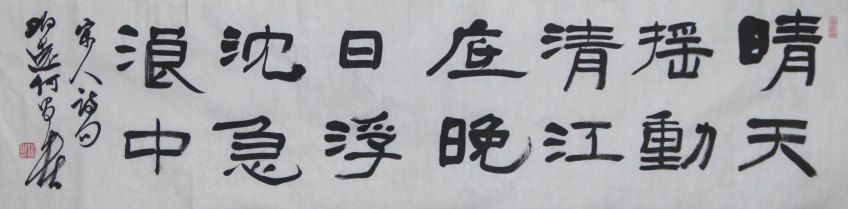 晴天
摇動
清江
底晚
日浮
沈急
浪中
宋人诗句